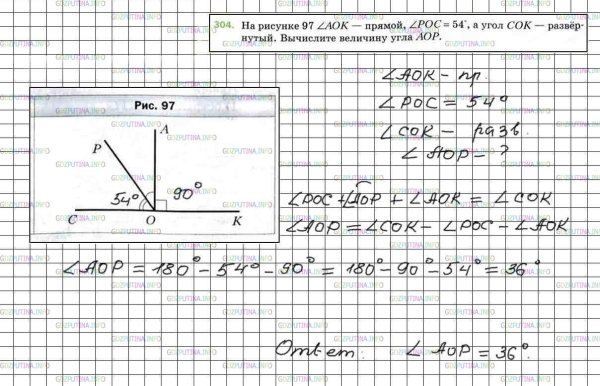 304. На рисунке 97 ∠AOK — прямой, ∠POC = 54°, а угол COK — развёр-
нутый. Вычислите величину угла AOP.
∠AOK – пр.
∠POC = 54°
∠COK – разв.
∠AOP – ?
Рис. 97
A
P
54° 90°
C O K
∠POC + ∠AOP + ∠AOK = ∠COK
∠AOP = ∠COK – ∠POC – ∠AOK
∠AOP = 180° – 54° – 90° = 180° – 90° – 54° = 36°
Ответ: ∠AOP = 36°.
GDZPUTINA.INFO